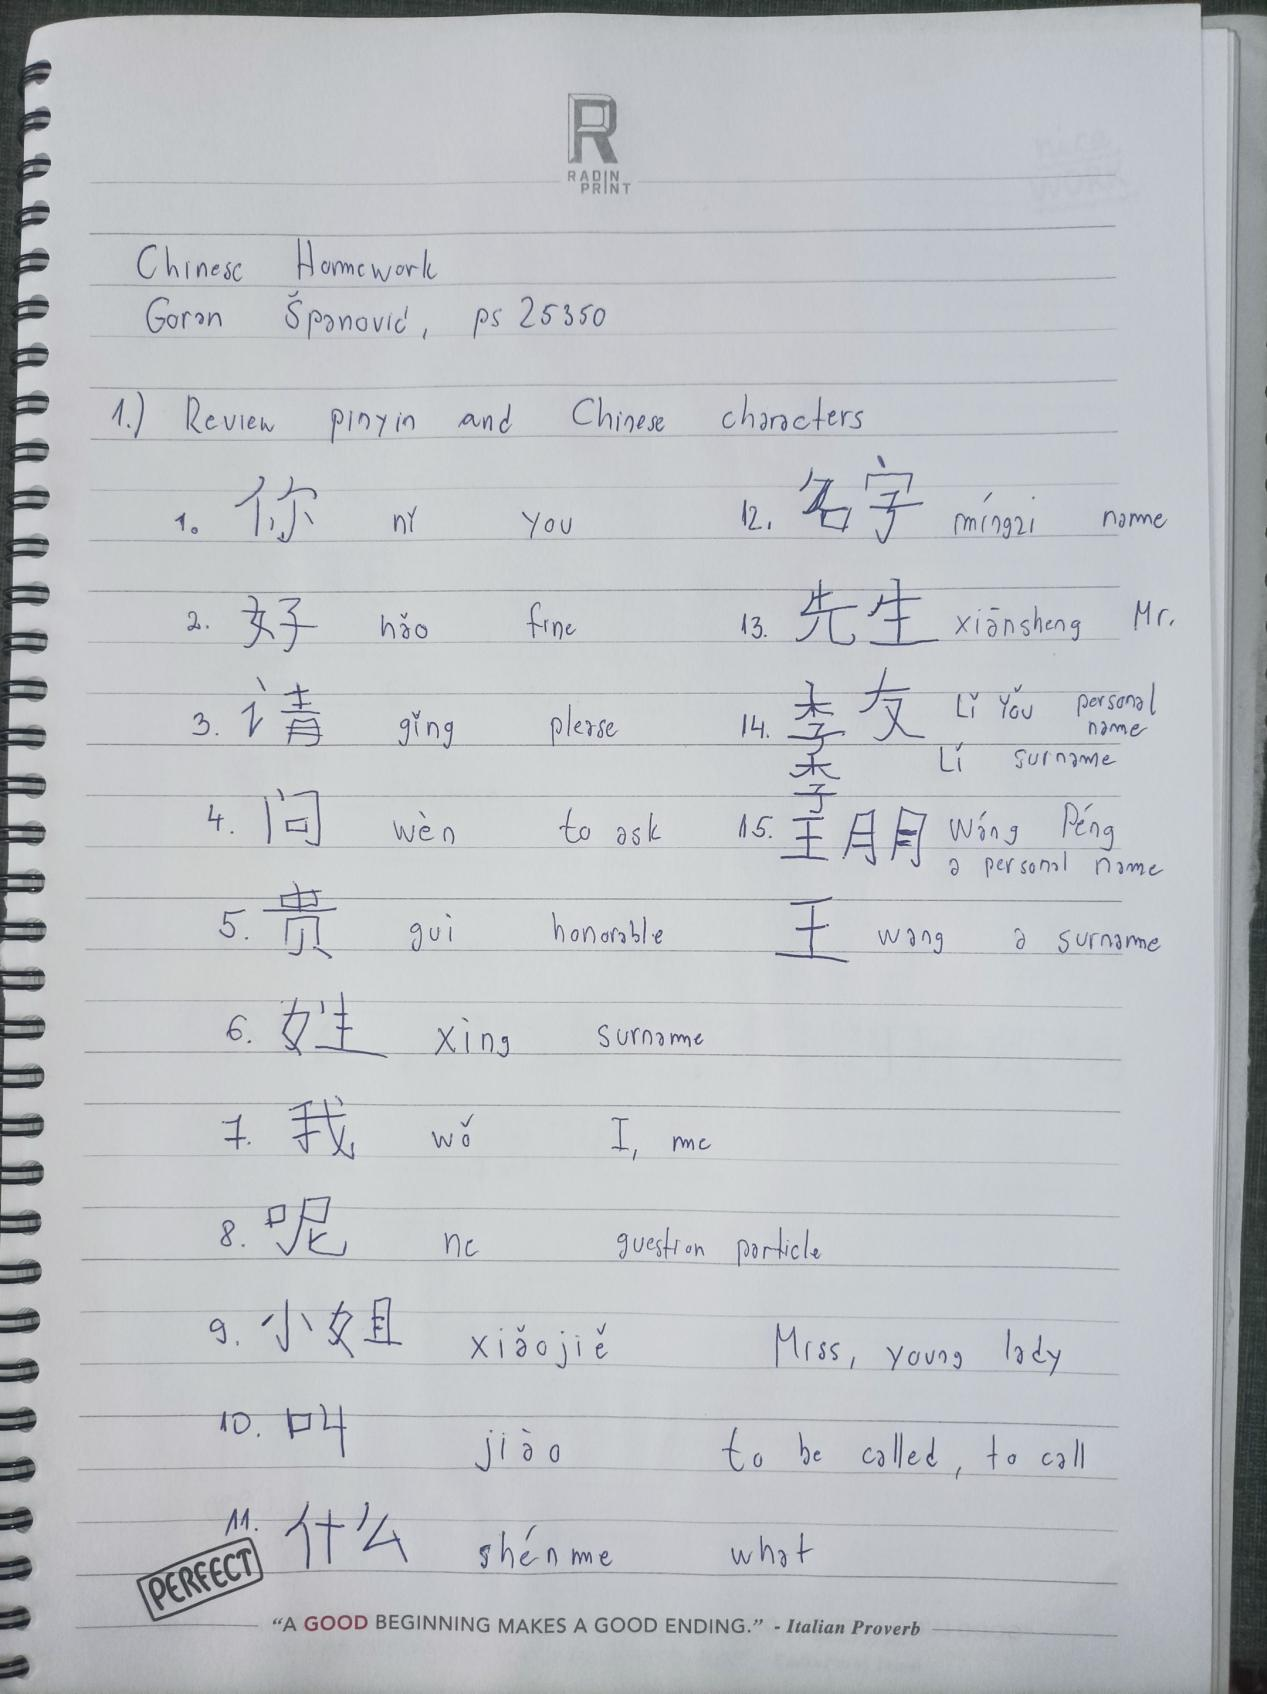 RADIN
PRINT
Chinese Homework
Goran Španović, ps 25350
1.) Review pinyin and Chinese characters
1. 你 nǐ you
2. 好 hǎo fine
3. 请 qǐng please
4. 问 wèn to ask
5. 贵 gui honorable
6. 姓 xìng surname
7. 我 wǒ I, me
8. 呢 ne question particle
9. 小姐 xiǎojiě Miss, young lady
10. 叫 jiào to be called, to call
11. 什么 shénme what
12. 名字 míngzi name
13. 先生 xiānsheng Mr.
14. 李友 Lǐ Yǒu personal name
李 Lí surname
15. 王朋 Wáng Péng
a personal name
王 wang a surname
PERFECT
“A GOOD BEGINNING MAKES A GOOD ENDING.” - Italian Proverb